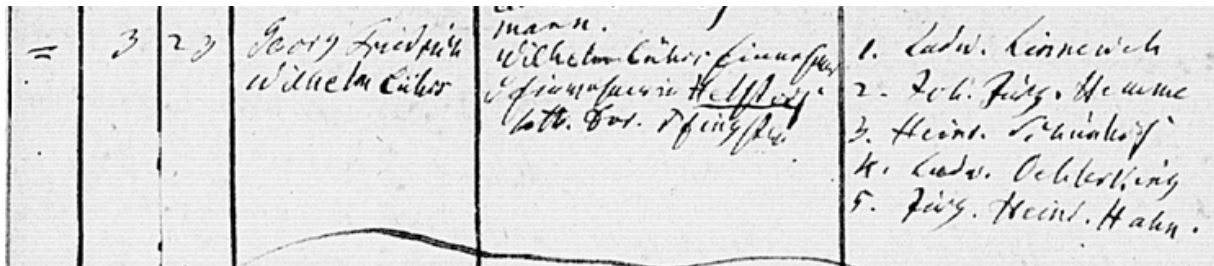 = 3 23
Georg Friedrich
Wilhelm Lührs
mann.
Wilhelm Lührs Einwohner
Einwohner in Helstorf
Dor. Pfingsten
1. Ludw. Linneweh
2. Joh. Jürg. Hemme
3. Heinr. Schünhof
4. Ludw. Oehlerking
5. Jürg. Heinr. Hahn.